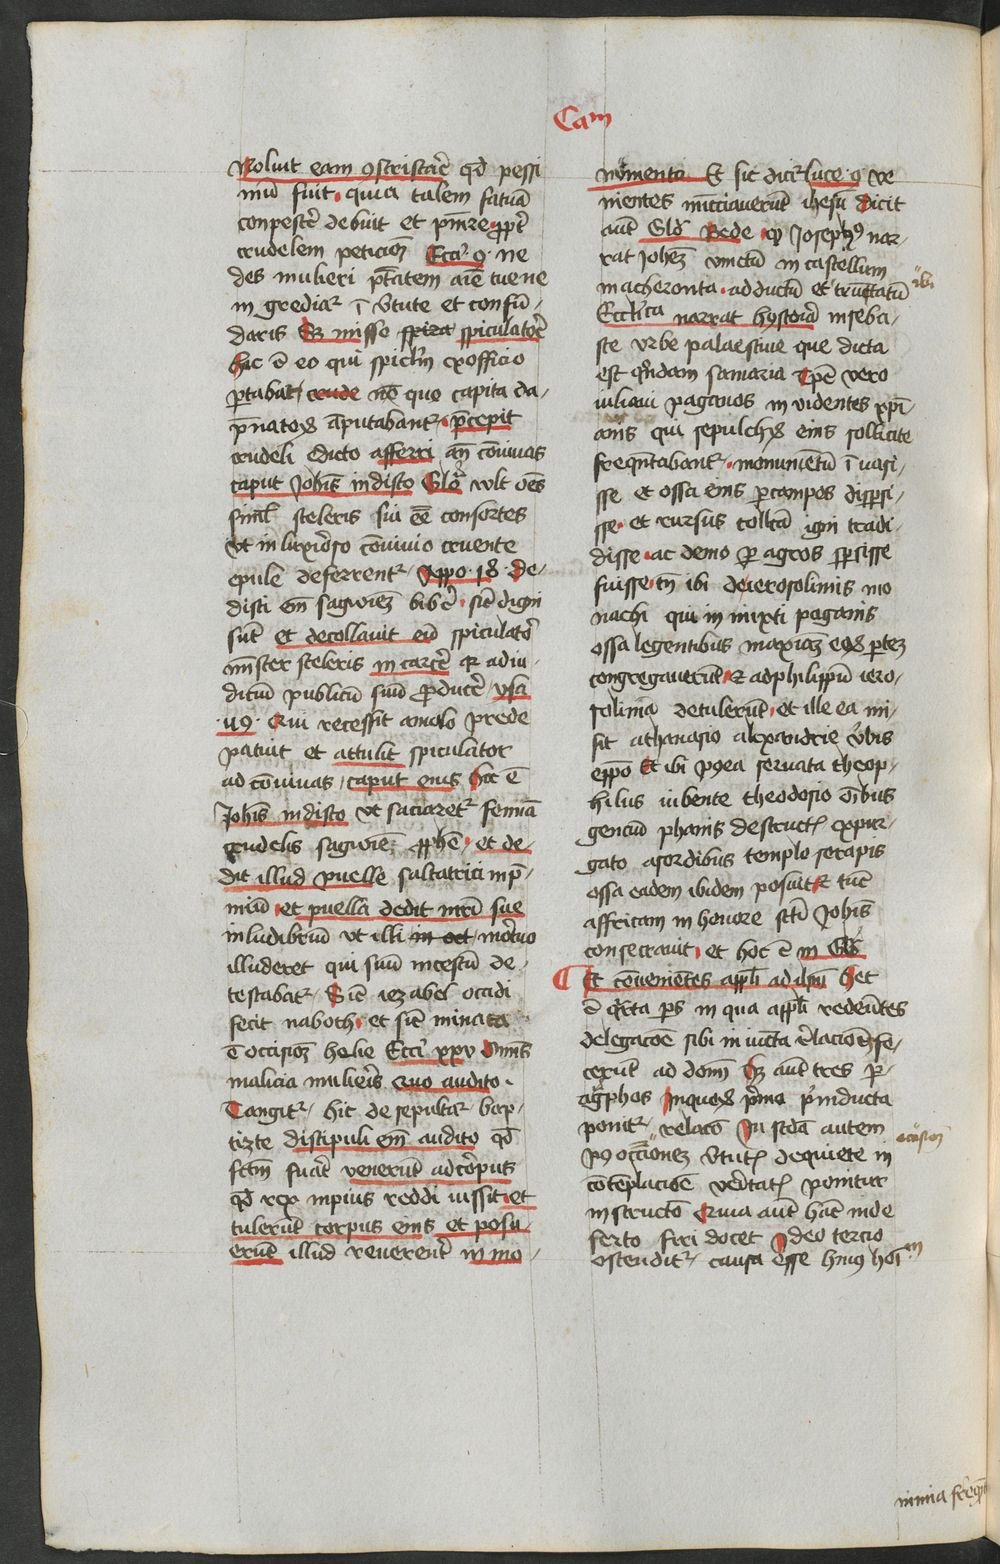 Cam
Noluit eam ꝯstristar̄e qd̄ pessi
mū fuit quia talem fatuā
conpescer̄ debuit et pm̄re ꝓpt̄
crudelem peticioꝫ Ecc̄i 9 ne
des mulieri ptātem aīe tue ne
in grediaꝛ ī v̄tute et confū-
daris Sꝫ misso spiculator̄e
hic ē eo qui spicl̄m ex officio
ꝑtabat nō quo capita da-
pnatoꝝ āputabantꝛ p̄cepit
crudeli dicto afferri an̄ cōuiuas
caput Joh̄is in disco Glo͛ vult oēs
siml̄ sceleris sui eē consortes
vt in luxioso cōuiuio cruente
epule deferrentꝛ 18 de-
disti eīs sagwieꝫ biber̄ sic̄ digni
sūt et decollauit eū spiculator̄
mīster sceleris in carcer̄
ditum publicū suū ꝓducer̄
119 Qui recessit a malo prede
patuit et attulit spiculator
ad cōuiuas caput eius hoc ē
Joh̄is in disco vt saciaretꝛ femīa
crudelis sagwieꝫ ꝓphē et de-
dit illud puelle saltatrici in p̄-
miū et puella dedit mr̄i sue
in ludibriū vt illi in oct mortuo
illuderet qui suū incestū de
testabatꝛ Sic̄ iezabel occidi
fecit naboth et sic̄ minata
ē occisioꝫ helie Ecc̄i xxv Omīs
malicia mulier̄is Quo audito
Tangitꝛ hic de sepultaꝛ bap-
tizte discipuli em̄ audito qd̄
fcm̄ fuat̄ venerūt ad corpus
qd̄ rex inpius reddi iussit et
tulerūt corpus eius et posu-
erūt illud reuerent̄ in mo-
nōmento Et sic dicit̄ luce 9 ve
nientes nucciauerūt ihesū dicit
aut̄ Glo͛ Bede ꝙ Joseph9 nar-
rat Joheꝫ vinctū in castellum
macheronta adductū et trūctatū ibi
Eccl̄ica narrat hystoria in seba-
ste vrbe palaestine que dicta
est qn̄dam samaria Tpē vero
iuliani paganos in videntes xp̄i
anis qui sepulchꝝ eius sollicite
freqn̄tabantꝛ monumētū ī uasi-
sse et ossa eius ꝑ campos disp̄si-
sse et rursus collc̄a igni tradi
disse ac demo ꝑ agros sp̄sisse
fuisse tn̄ ibi de ierosolimis mo
nachi qui in mixti paganis
ossa legentibus maxiāꝫ eoꝝ ꝑteꝫ
congregauerūt & ad philippū iero-
solima detulerūt et ille ea mi-
sit athanasio alexandrie vr̄bis
ep̄po Et ibi p9ea seruata theop-
hilus iubente theodosio oībus
gencium phanis destructꝭ expur-
gato a sordibus templo serapis
ossa eadem ibidem posuit & tūc
affricam in honore scti Johīs
consecrauit et hoc ē in Glo͛
¶ Et cōuenientes appl̄i ad ihm̄ Hec
ē q̄rta ps in qua appl̄i redeūtes
delegacōe sibi in iūcta relacioneꝫ fe-
cerūt ad dom̄ Sꝫ aut̄ tres ꝑ-
ag̅phos In quoꝝ p̄mo p̄inducta
ponitꝛ relaco͛ In scd̄a autem
p9 occioneꝫ v̄tutꝭ de quiete in occisioꝫ
cōtēplacōe v̄itatꝭ ponitur
instructo͛ Quia aut̄ hāc inde
serto fieri docet Ideo tercio
ostenditꝛ causa esse hui9 hoī m
nimia freqn̄